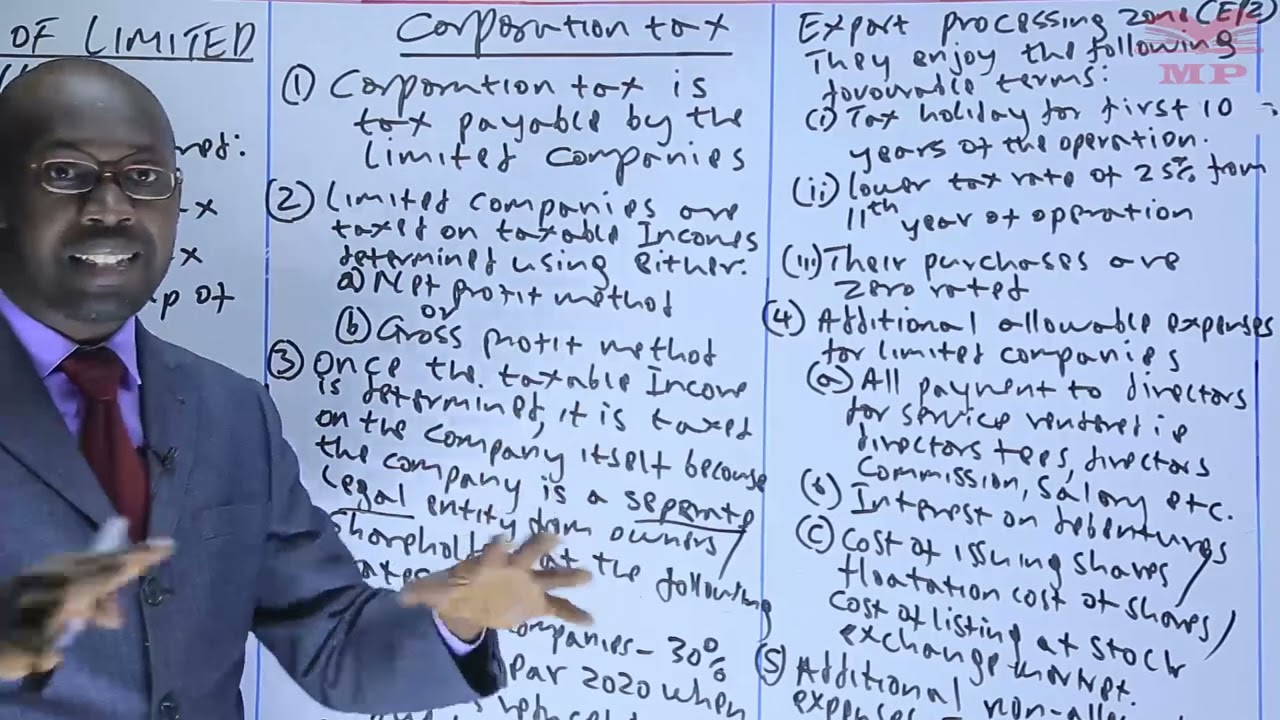 OF LIMITED
ned:
x
x
p of
Corporation tax
(1) Corporation tax is
tax payable by the
limited companies
(2) Limited companies are
taxed on taxable Incomes
determined using either:
a) Net profit method
or
(b) Gross profit method
(3) Once the taxable Income
is determined, it is taxed
on the company itself because
the company is a seperate
legal entity from owners/
at the following
companies - 30%
2020 when
Export processing zone (EPZ)
They enjoy the following
favourable terms:
(i) Tax holiday for first 10
years of the operation.
(ii) lower tax rate of 25% from
11th year of operation
(iii) Their purchases are
zero rated
(4) Additional allowable expenses
for limited companies
(a) All payment to directors
for service rendered ie
directors fees, directors
commission, salary etc.
(b) Interest on debentures
(c) Cost of issuing shares/
floatation cost of shares/
cost of listing at stock
exchange market.
(5) Additional non-
expenses
MP